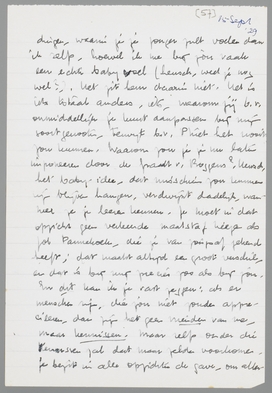 (57)
15 Sept
'39
dingen, waarin je je jonger zult voelen dan
ik zelf, hoewel ik me bij jou vaak
een echte baby voel (heusch, weet je nog
wel?). Het zit hem daarin niet. Het is
iets totaal anders, iets, waarom jij b.v.
onmiddellijk je kunt aanpassen bij mijn
soort genooten, terwijl b.v. P. het het nooit
zou kunnen. Waarom zou je je nu laten
imponeeren door de praat v. ? Heusch,
het baby-idee, dat misschien zou kunnen
blijven hangen, verdwijnt dadelijk, wan-
neer je je leeren kennen. Je moet in dat
opzicht geen verkeerde maatstaf nemen als
Job Pannekoek, die je van gehoord
heeft; dat maakt altijd een groot verschil,
en dat is bij mij precies zoo als bij jou.
En dit kan ik je vast zeggen: als er
menschen zijn, die jou niet zouden appre-
cieeren, dan zijn het geen vrienden van me,
maar kennissen. Maar zelfs onder die
kennissen zal dat maar zelden voorkomen.
Je bezit in alle opzichten de gave, om allen